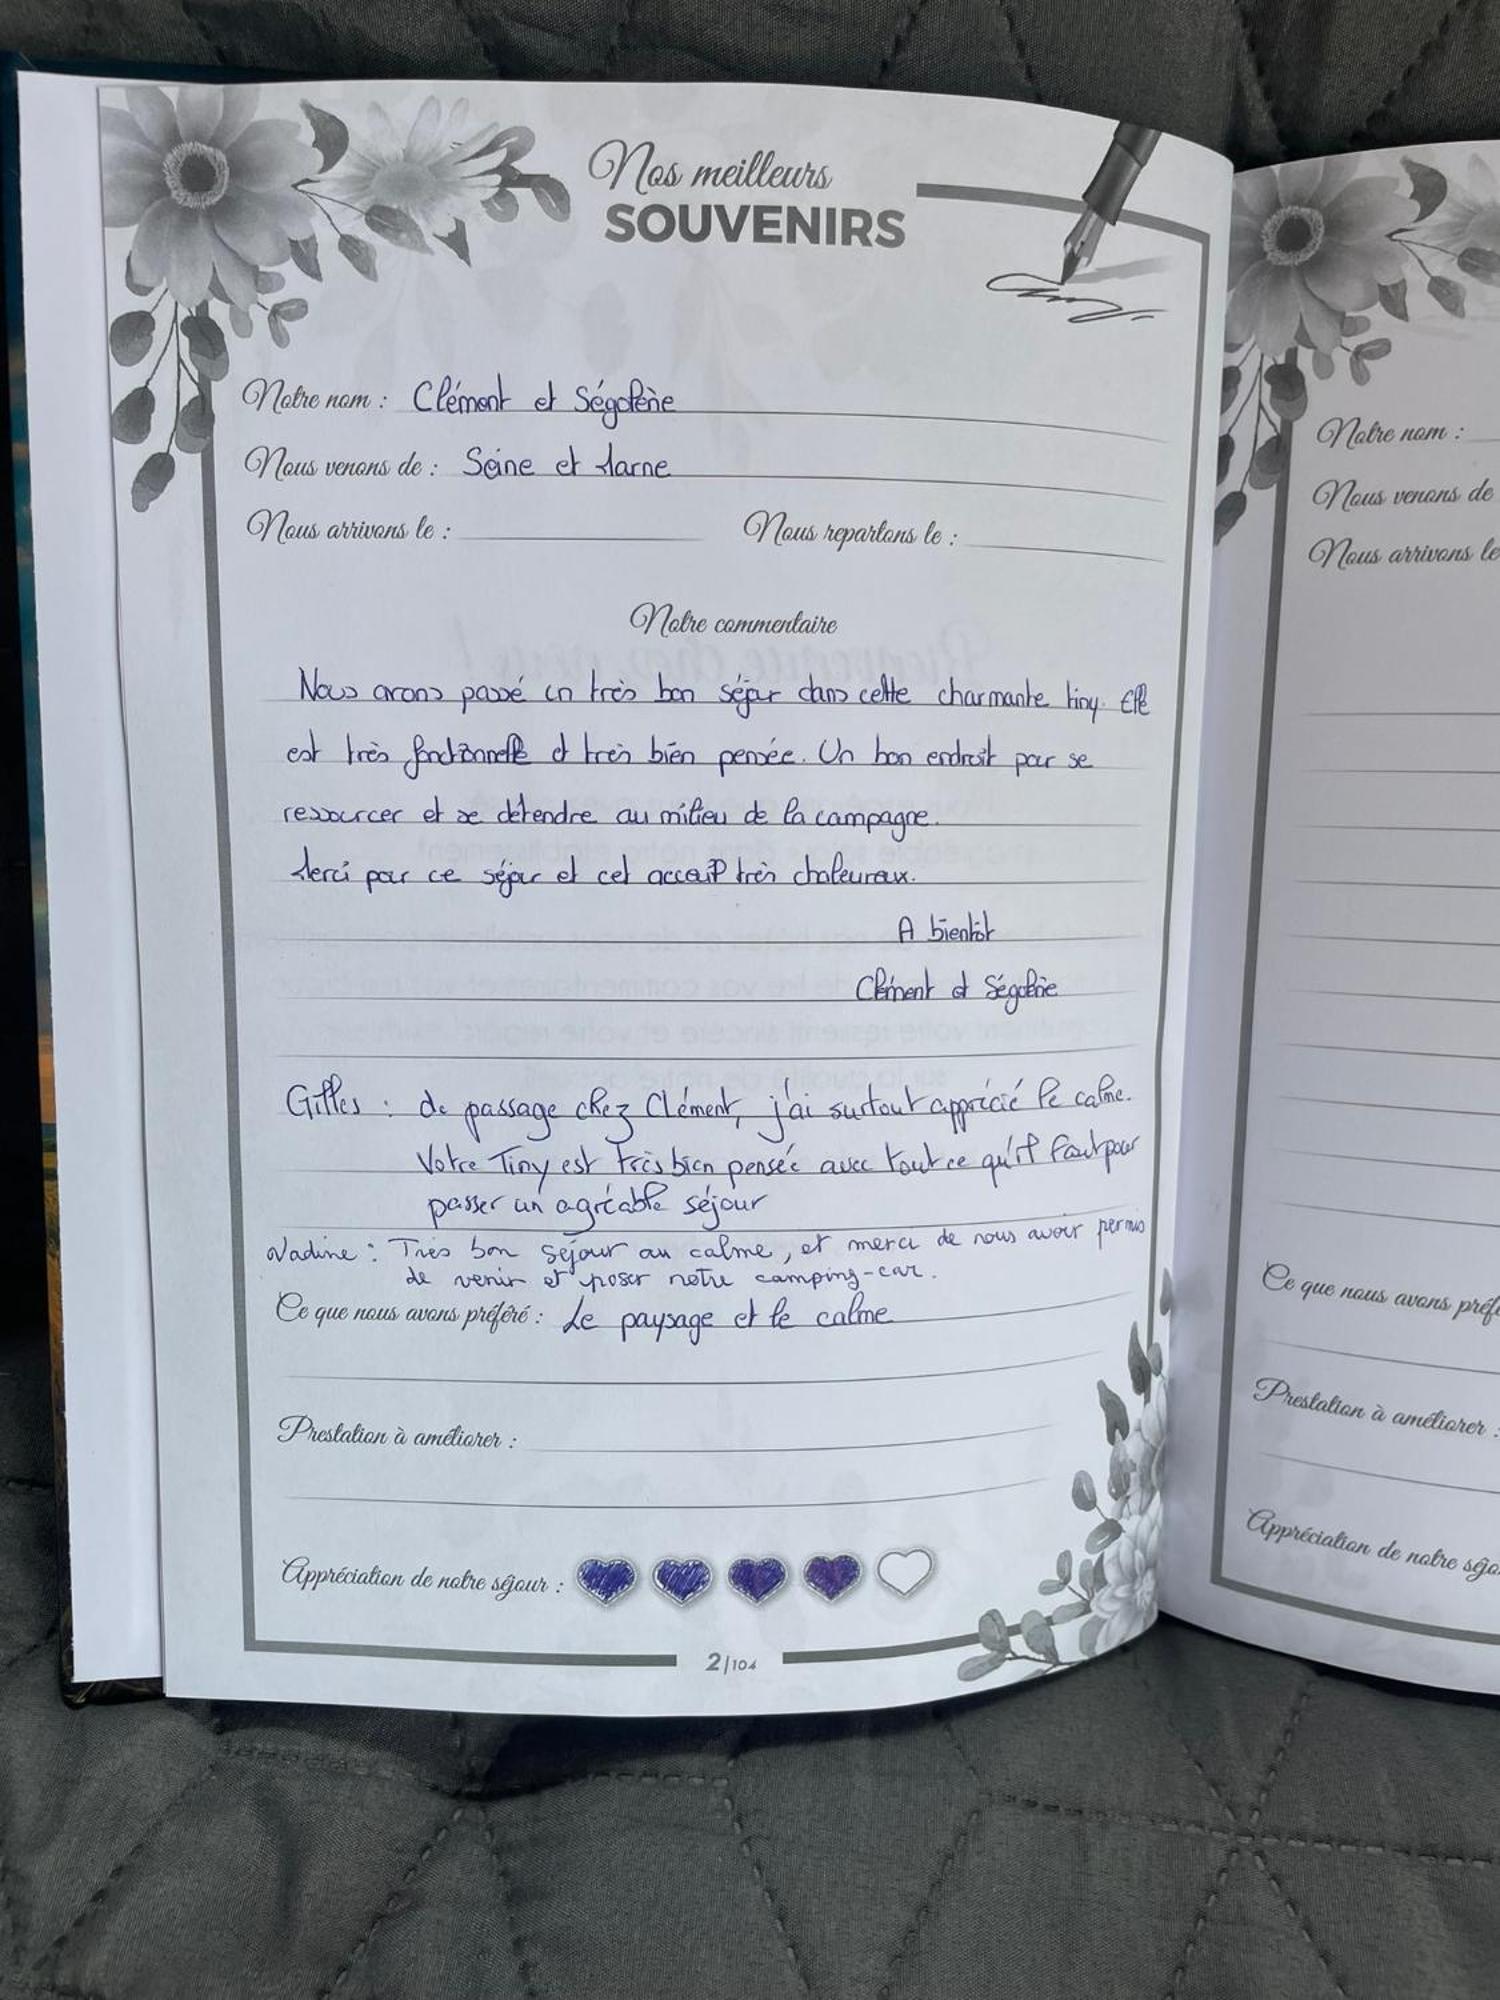 Nos meilleurs
SOUVENIRS
Notre nom : Clément et Ségolène
Nous venons de : Seine et Marne
Nous arrivons le :
Nous repartons le :
Notre commentaire
Nous avons passé un très bon séjour dans cette charmante tiny. Elle
est très fonctionnelle et très bien pensée. Un bon endroit pour se
ressourcer et se détendre au milieu de la campagne.
Merci pour ce séjour et cet accueil très chaleureux.
A bientôt
Clément et Ségolène
Gilles : de passage chez Clément, j'ai surtout apprécié le calme.
Votre Tiny est très bien pensée avec tout ce qu'il faut pour
passer un agréable séjour
Nadine : Très bon séjour au calme, et merci de nous avoir permis
de venir et poser notre camping-car.
Ce que nous avons préféré : Le paysage et le calme
Prestation à améliorer :
Appréciation de notre séjour :
2/104
Notre nom :
Nous venons de
Nous arrivons le
Ce que nous avons préf
Prestation à améliorer :
Appréciation de notre séjo